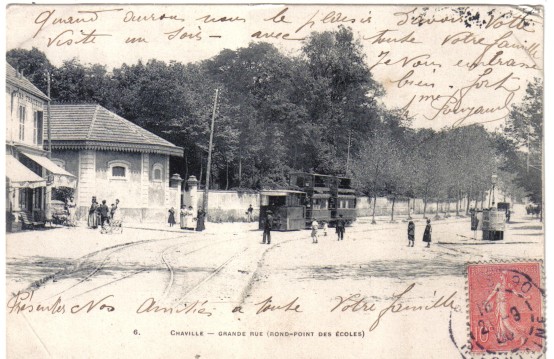 Quand aurons nous le plaisir d'avoir Votre
Visite un soir avec toute Votre famille
Je Vous embrasse
bien fort
Présentez Nos Amitiés à toute Votre famille
6. CHAVILLE — GRANDE RUE (ROND-POINT DES ÉCOLES)
10